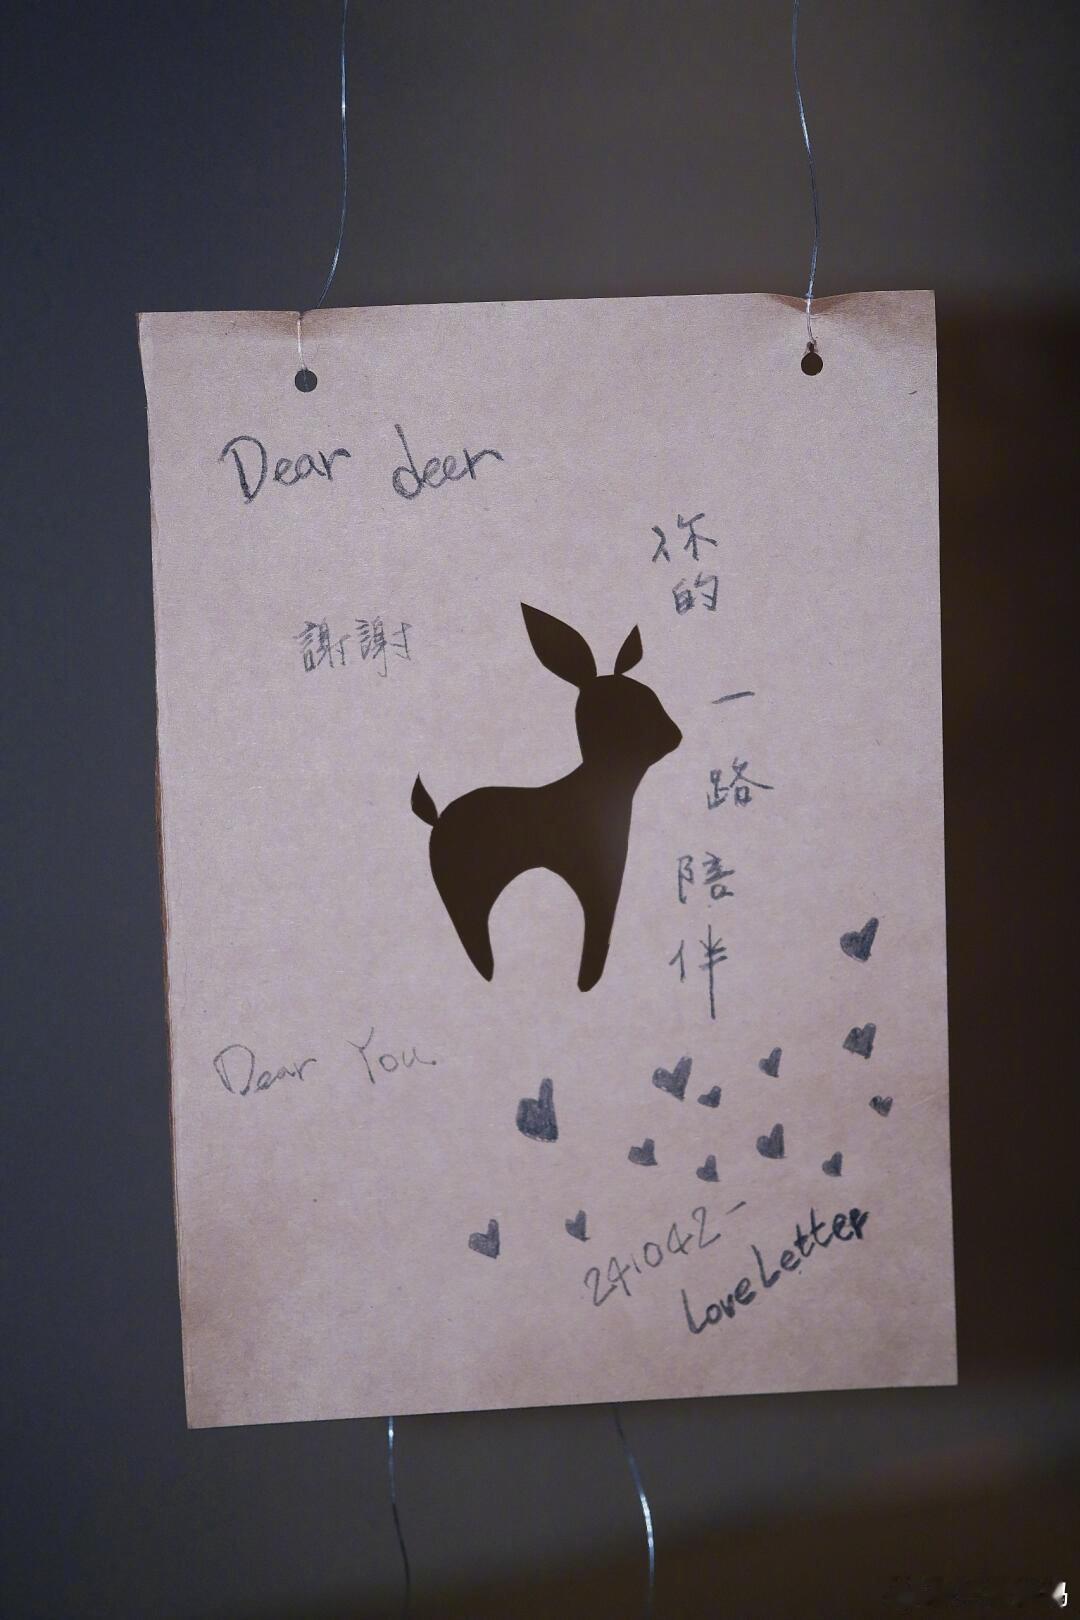 Dear deer
謝謝
祢的一路陪伴
Dear You
241042-
Love Letter